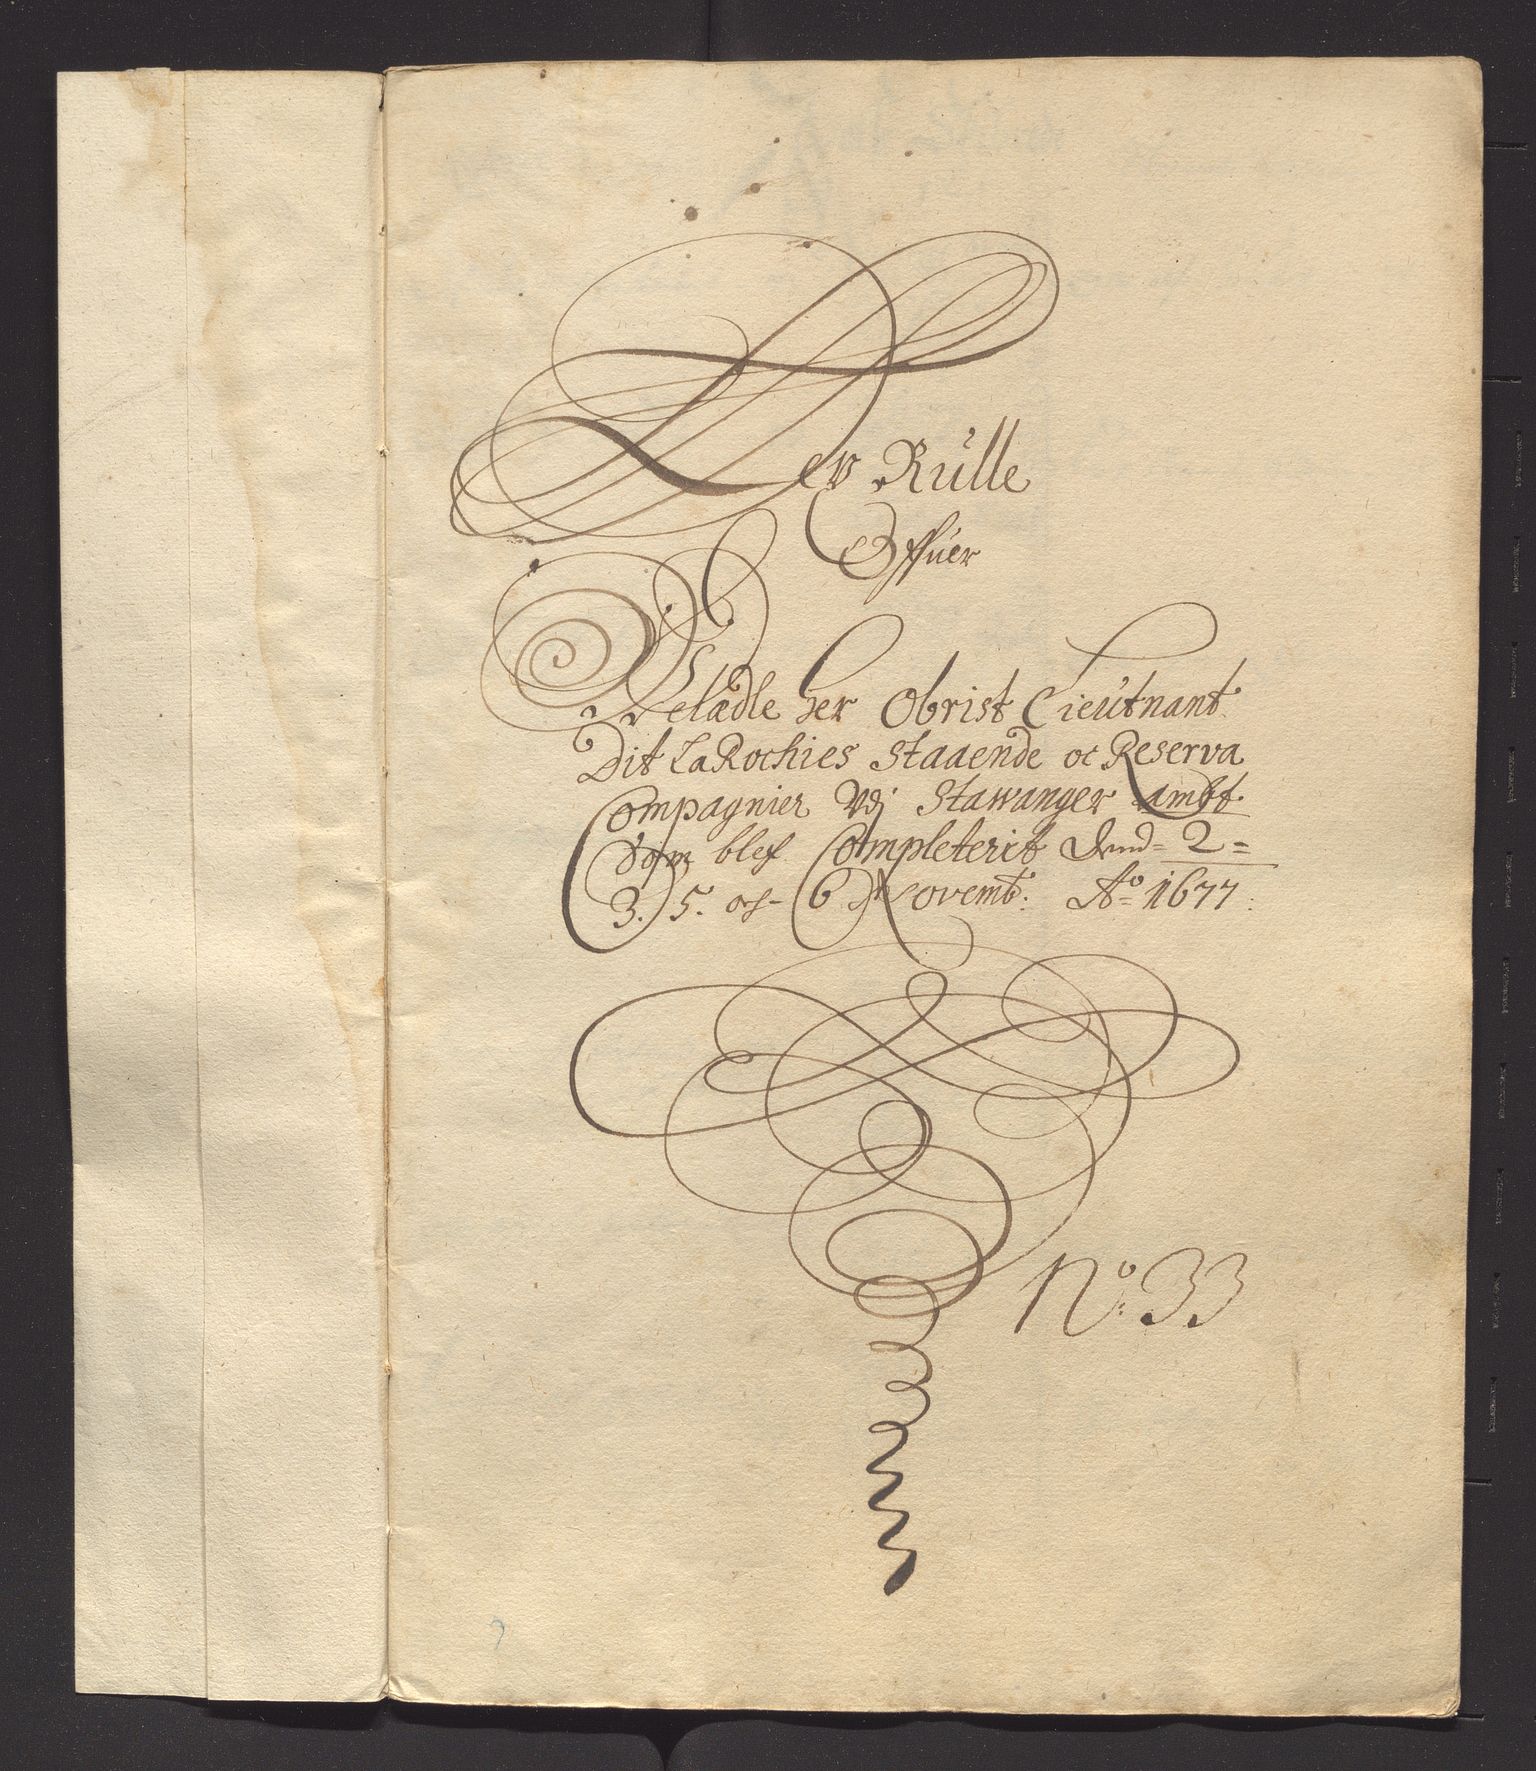 Lev Rülle
Offüer
Velædle her Obrist Lieütnant
Dit LaRochies Staaende oc Reserva
Compagnier Vdj Stawanger Lambt.
Som blef Completerit Dend = 2 =
3. 5. och 6 Novemb: A:o 1677:
N:o 33